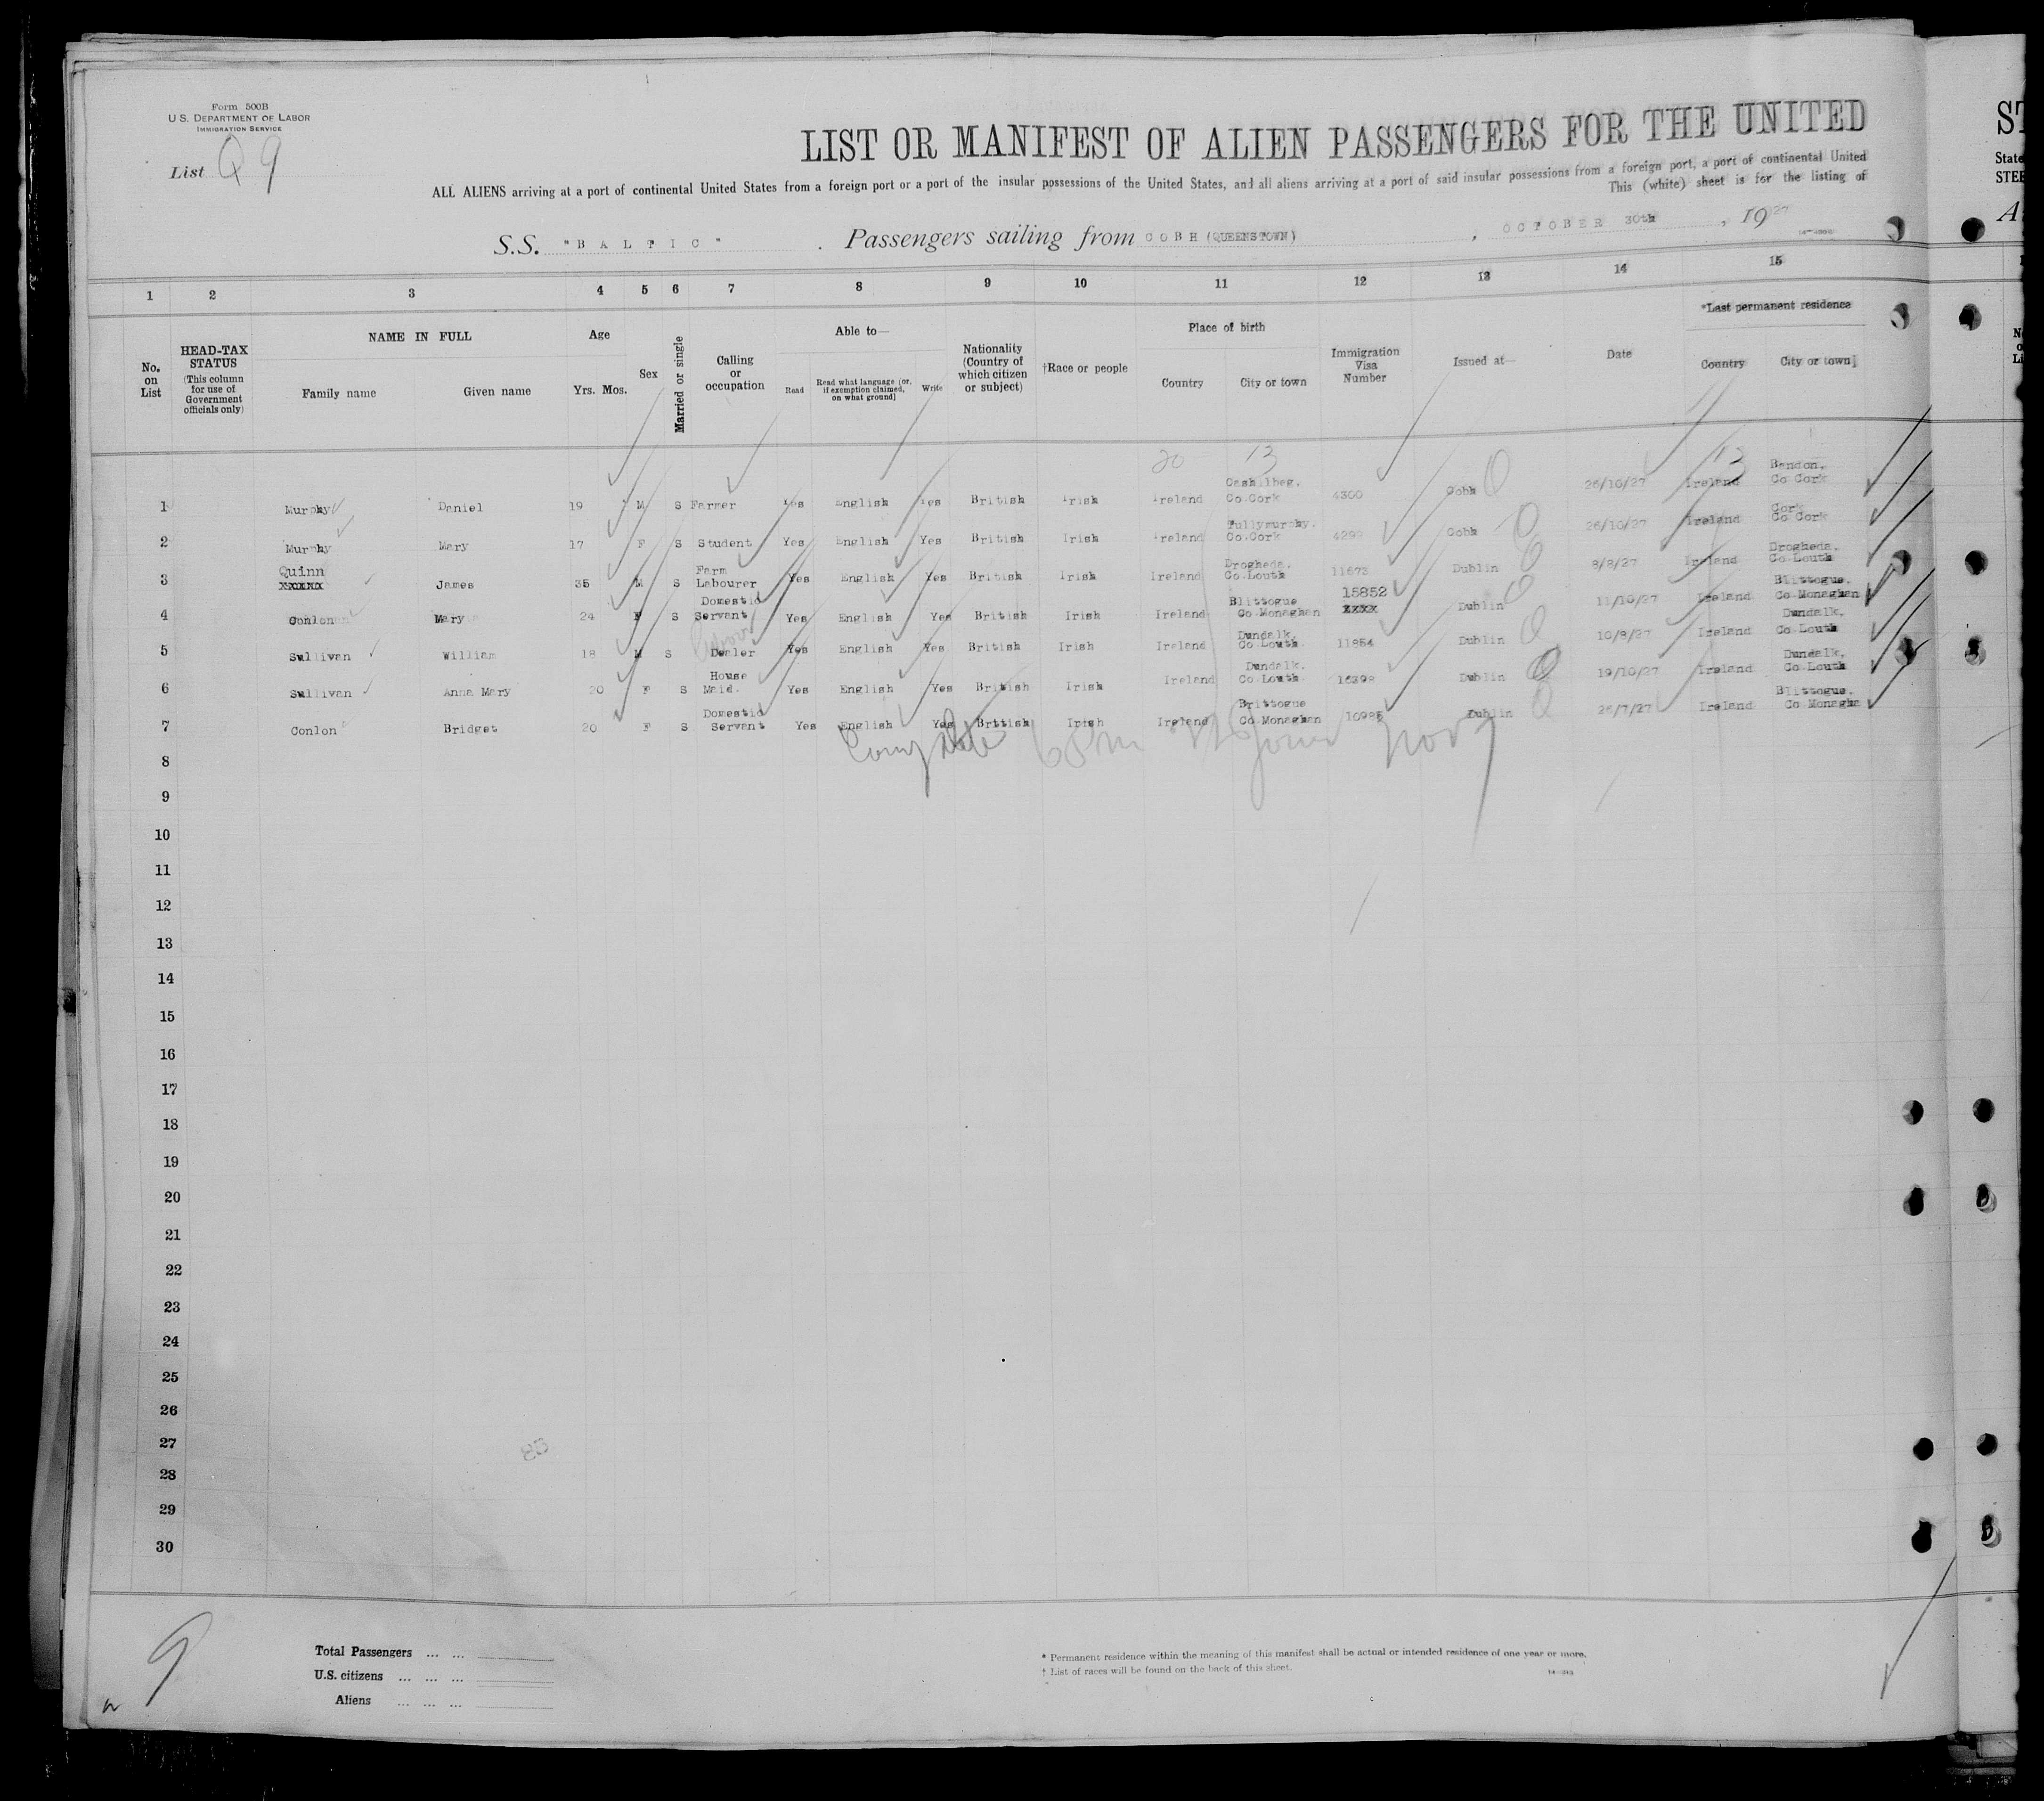 Form 500B
U.S. DEPARTMENT OF LABOR
IMMIGRATION SERVICE
List Q 9
LIST OR MANIFEST OF ALIEN PASSENGERS FOR THE UNITED
ALL ALIENS arriving at a port of continental United States from a foreign port or a port of the insular possessions of the United States, and all aliens arriving at a port of said insular possessions from a foreign port, a port of continental United
This (white) sheet is for the listing of
S.S. "BALTIC". Passengers sailing from COBH (QUEENSTOWN), OCTOBER 30th, 1927
1 2 3 4 5 6 7 8 9 10 11 12 13 14 15
No. on List
HEAD-TAX STATUS (This column for use of Government officials only)
NAME IN FULL
Family name Given name
Age
Yrs. Mos.
Sex
Married or single
Calling or occupation
Able to—
Read Read what language [or, if exemption claimed, on what ground] Write
Nationality (Country of which citizen or subject)
†Race or people
Place of birth
Country City or town
Immigration Visa Number
Issued at—
Date
*Last permanent residence
Country City or town
20 13 13
1 Murphy Daniel 19 M S Farmer Yes English Yes British Irish Ireland Co Cork 4300 Cobh 26/10/27 Ireland Bandon, Co Cork
2 Murphy Mary 17 F S Student Yes English Yes British Irish Ireland Tullymurphy, Co.Cork 4299 Cobh 26/10/27 Ireland Cork Co Cork
3 Quinn xxxxx James 35 M S Farm Labourer Yes English Yes British Irish Ireland Drogheda, Co Louth 11673 Dublin 8/8/27 Ireland Drogheda, Co Louth
4 Conlon Mary 24 F S Domestic Servant Yes English Yes British Irish Ireland Blittogue Co Monaghan 15852 xxxx Dublin 11/10/27 Ireland Blittogue, Co Monaghan
5 Sullivan William 18 M S Dealer Yes English Yes British Irish Ireland Dundalk, Co Louth 11854 Dublin 10/8/27 Ireland Dundalk, Co Louth
6 Sullivan Anna Mary 20 F S House Maid. Yes English Yes British Irish Ireland Dundalk. Co Louth 16398 Dublin 19/10/27 Ireland Dundalk, Co Louth
7 Conlon Bridget 20 F S Domestic Servant Yes English Yes Brttish Irish Ireland Brittogue Co Monaghan 10985 Dublin 26/7/27 Ireland Blittogue, Co Monagha
Complete Nov 9
8
9
10
11
12
13
14
15
16
17
18
19
20
21
22
23
24
25
26
27
28
29
30
9
Total Passengers ... ...
U.S. citizens ... ... ...
Aliens ... ... ...
* Permanent residence within the meaning of this manifest shall be actual or intended residence of one year or more.
† List of races will be found on the back of this sheet.
ST
State